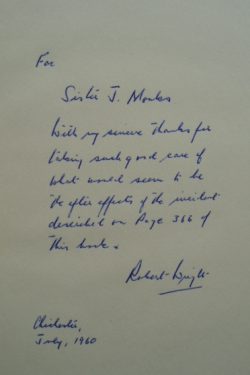 For
Sister J. Monks
With my sincere thanks for
taking such good care of
what would seem to be
the after effects of the incident
described on Page 366 of
this book.
Robert Wright
Chichester,
July, 1960